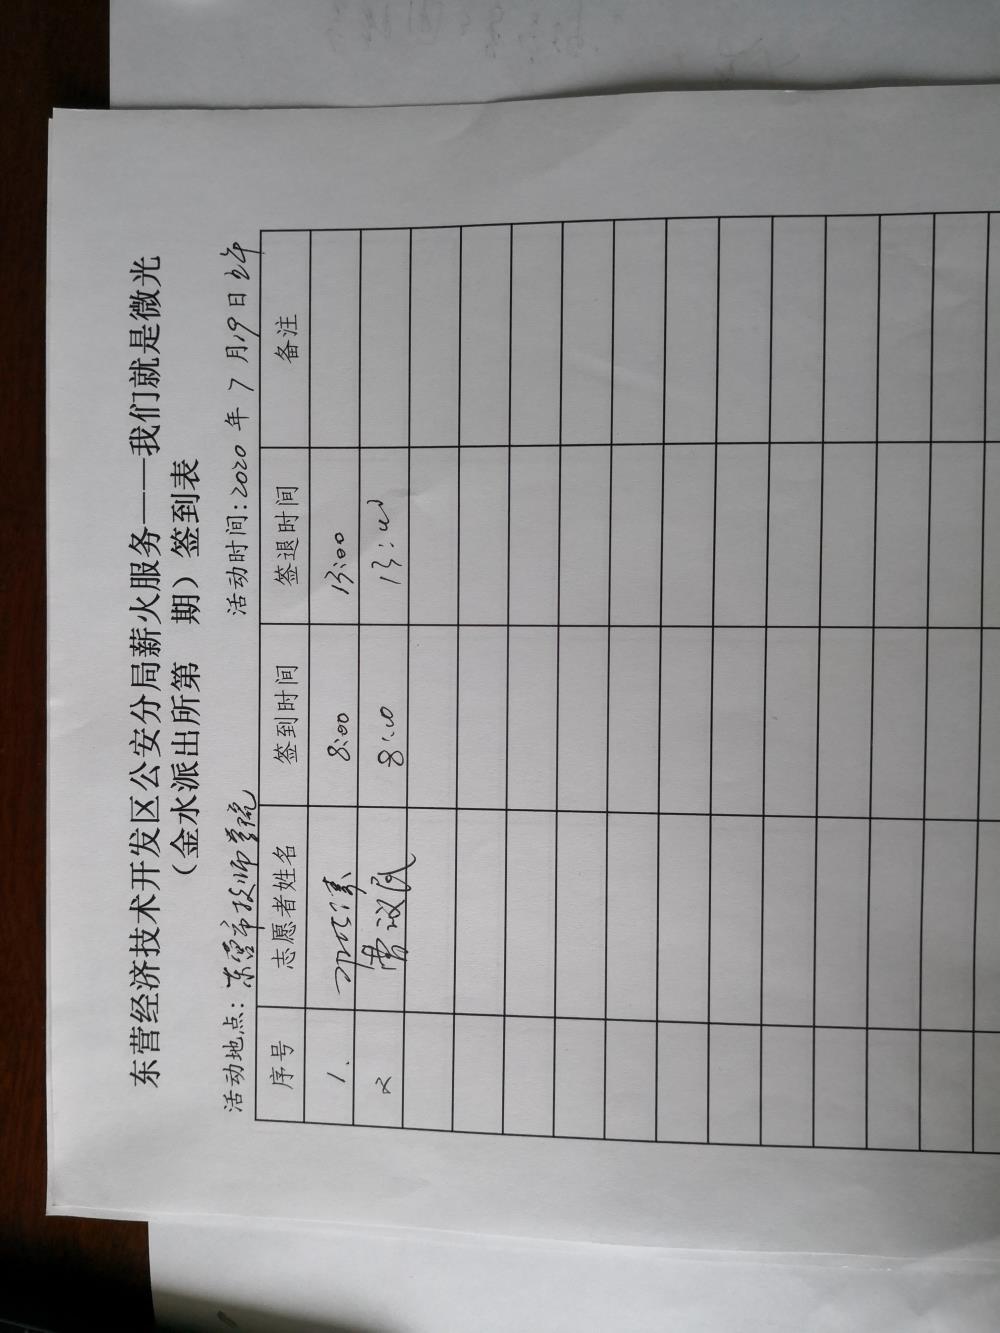 东营经济技术开发区公安分局薪火服务——我们就是微光
（金水派出所第 期）签到表
活动地点：东营市技师学院 活动时间：2020 年 7 月 19 日 上午
序号 志愿者姓名 签到时间 签退时间 备注
1、 8:00 13:00
2 8:00 13:00